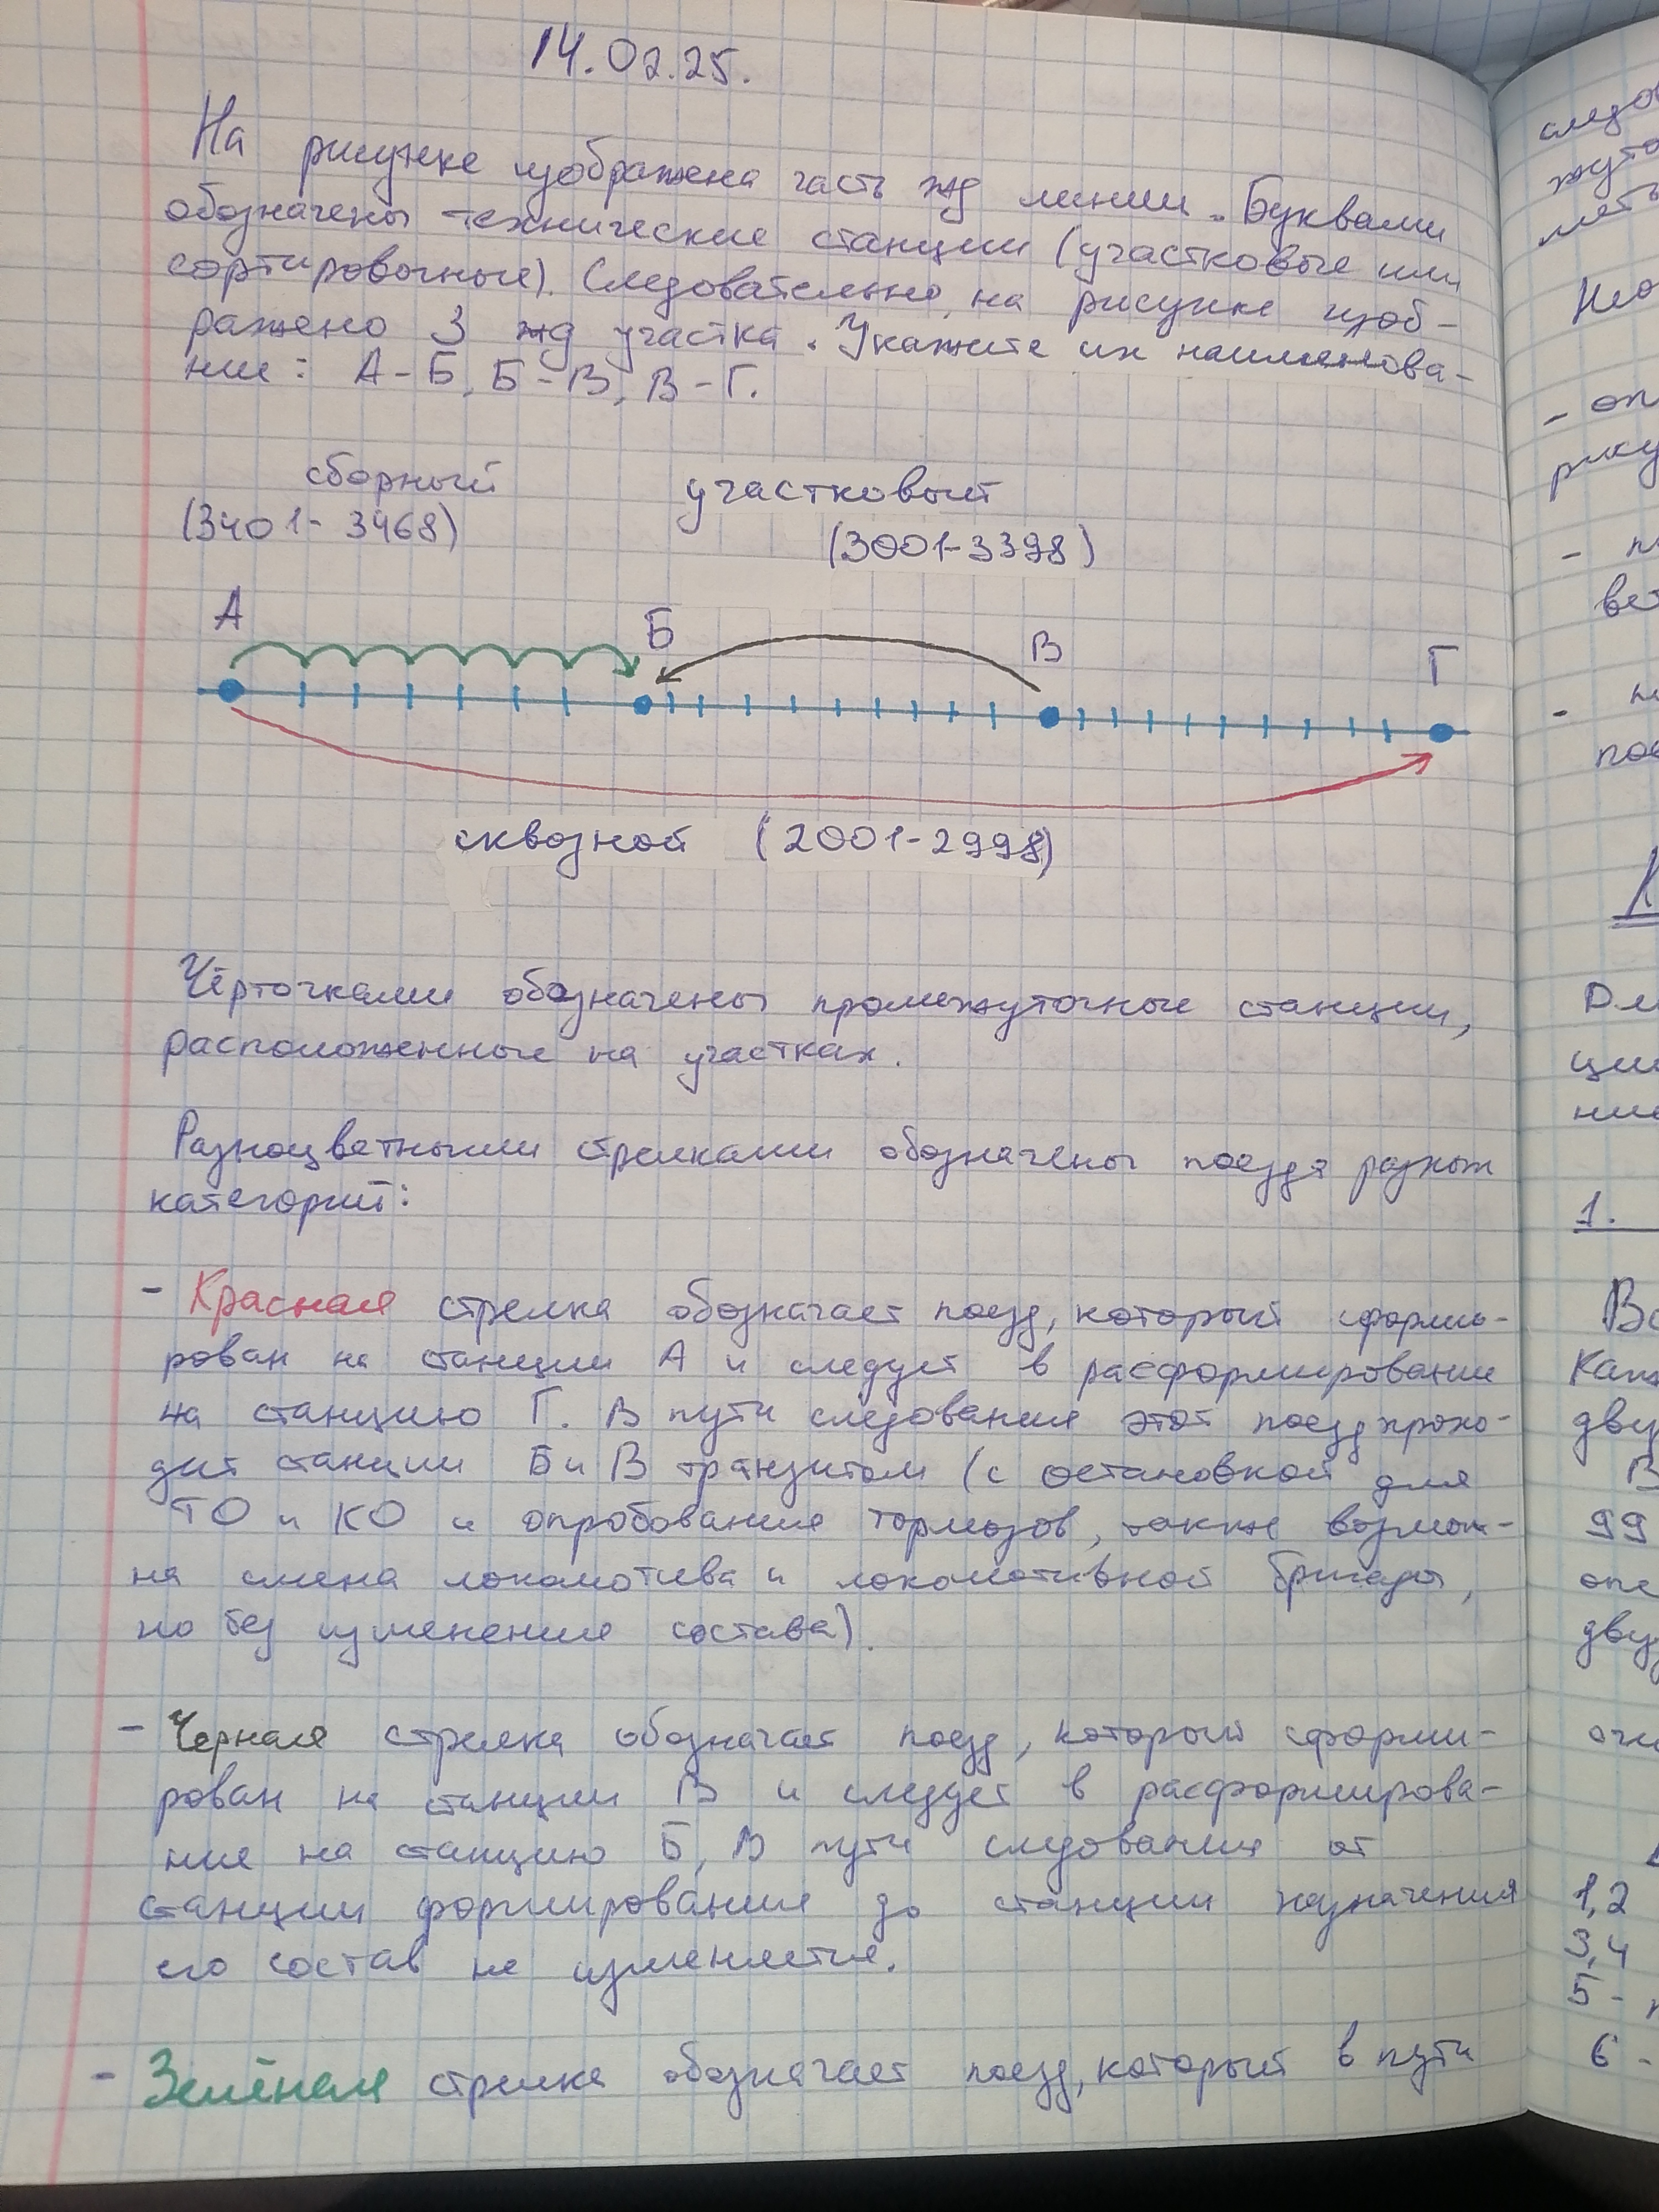 14.02.25.
На рисунке изображена часть жд линии. Буквами
обозначены технические станции (участковые или
сортировочные). Следовательно, на рисунке изоб-
ражено 3 жд участка. Укажите их наименова-
ние: А-Б, Б-В, В-Г.
сборный
(3401-3468)
участковый
(3001-3398)
А
Б
В
Г
сквозной (2001-2998)
Чёрточками обозначены промежуточные станции,
расположенные на участках.
Разноцветными стрелками обозначены поезда разных
категорий:
- Красная стрелка обозначает поезд, который сформи-
рован на станции А и следует в расформирование
на станцию Г. В пути следования этот поезд прохо-
дит станции Б и В транзитом (с остановкой для
ТО и КО и опробования тормозов, также возмож-
на смена локомотива и локомотивной бригады,
но без изменения состава).
- Черная стрелка обозначает поезд, который сформи-
рован на станции В и следует в расформирова-
ние на станцию Б, В пути следования от
станции формирования до станции назначения
его состав не изменяется.
- Зелёная стрелка обозначает поезд, который в пути
следов
жуто
лять
- оп
рику
- п
вет
- н
пое
К
Дл
ции
ние
1.
Вс
Каж
двуз
В
99
опе
двуз
1,2
3,4
5 - п
6 -